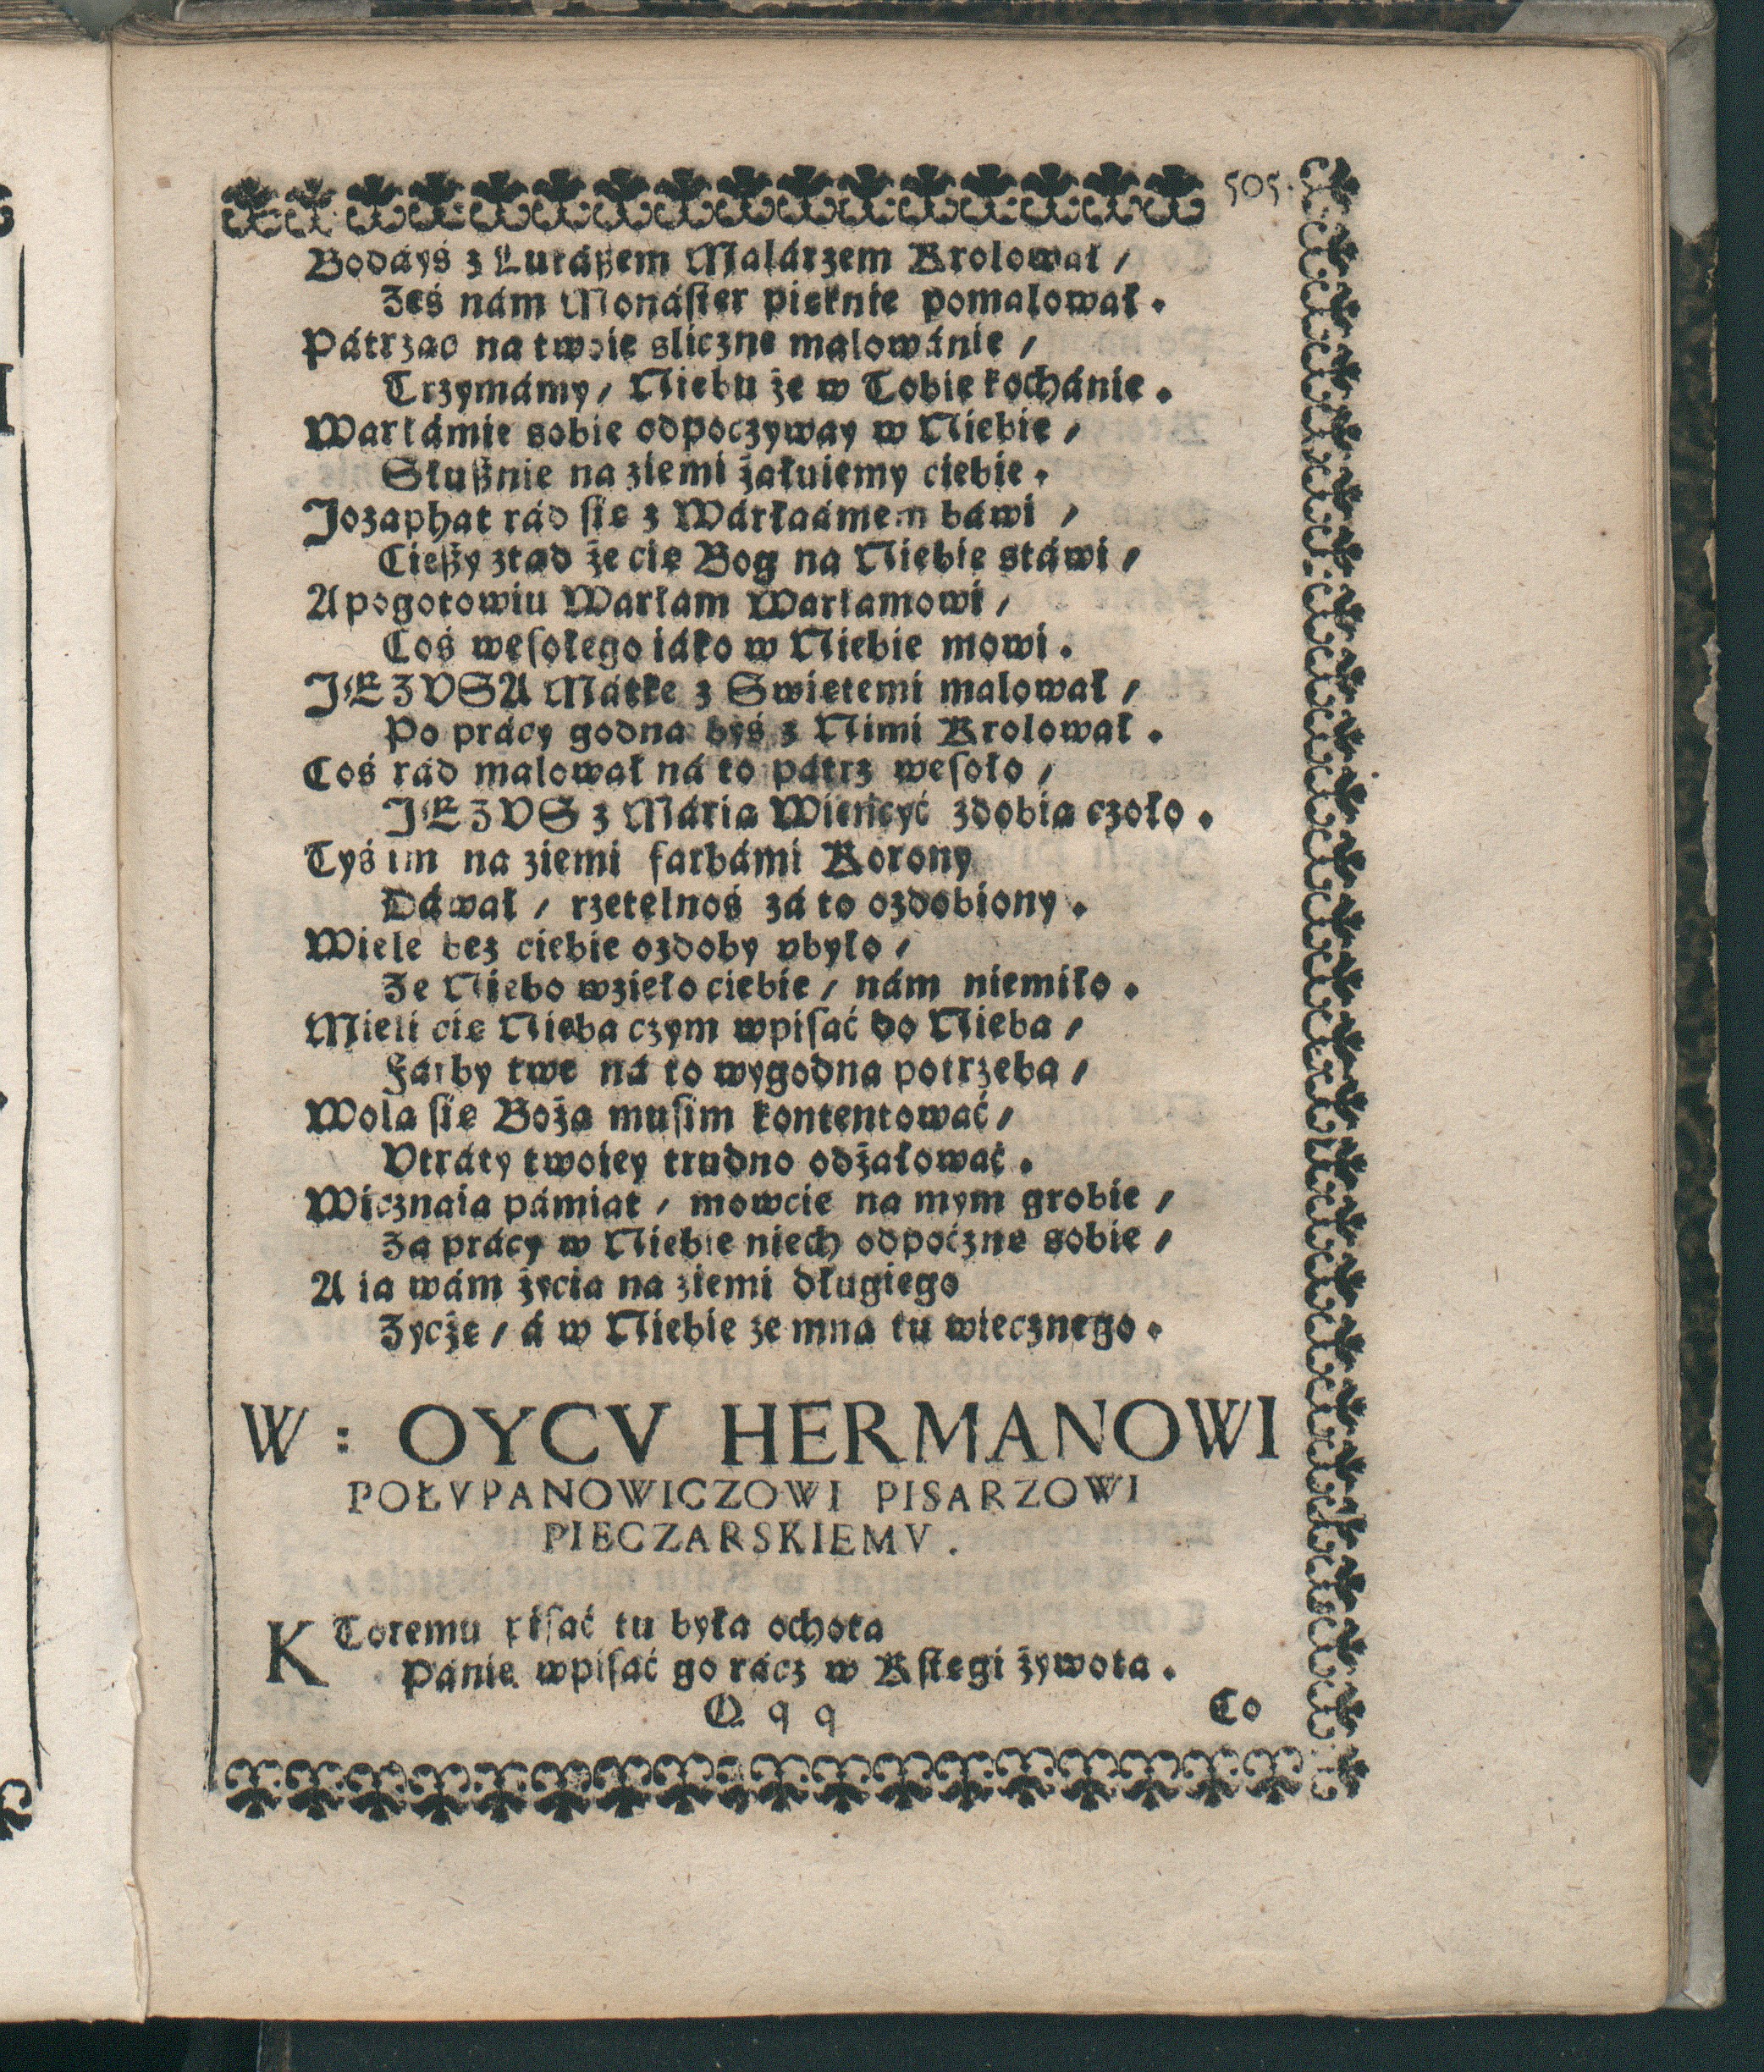 505.
Bodáyś z Łukászem Malárzem Krolował /
Ześ nám Monáster pieknie pomalował.
Pátrząc na twoie sliczne malowánie /
Trzymámy / Niebu że w Tobie kochánie.
Warłámie sobie odpoczyway w Niebie /
Słusznie na ziemi żałuiemy ciebie.
Jozaphat rád sie z Wárłaámem báwi /
Cieszy ztąd że cie Bog na Niebie stáwi /
A pogotowiu Warłam Warłamowi /
Coś wesołego iáko w Niebie mowi.
JEZVSA Mátke z Swietemi malował /
Po prácy godna byś z Nimi Krolował.
Coś rád malował ná to pátrz wesoło /
JEZVS z Márią Wieńcyć zdobią czoło.
Tyś im na ziemi farbámi Korony
Dáwał / rzetelnoś zá to ozdobiony.
Wiele bez ciebie ozdoby vbyło /
Ze Niebo wzieło ciebie / nám niemiło.
Mieli cie Nieba czym wpisáć do Nieba /
Fárby twe ná to wygodna potrzeba /
Wolą sie Bożą musim kontentowáć /
Vtráty twoiey trudno odżałowáć.
Wiecznaia pámiat / mowcie na mym grobie /
Za prácy w Niebie niech odpoćzne sobie /
A ia wám życia na ziemi długiego
Zyczże / á w Niebie ze mną tu wiecznego.
W: OYCV HERMANOWI
POŁVPANOWICZOWI PISARZOWI
PIECZARSKIEMV.
KToremu pisáć tu była ochota
Pánie wpisáć go rácz w Kstegi żywota.
Q q q Co